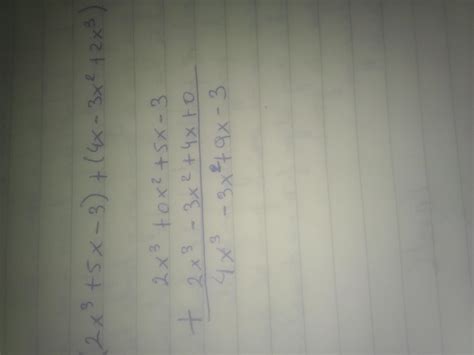 (2x³ + 5x - 3) + (4x - 3x² + 2x³)
2x³ + 0x² + 5x - 3
+ 2x³ - 3x² + 4x + 0
4x³ - 3x² + 9x - 3